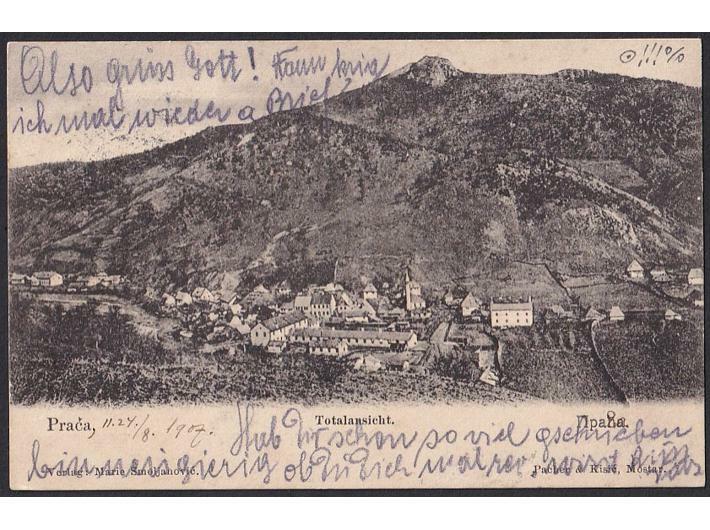 Also grüss Gott! Kann krig
ich mal wieder a Brief!
Prača, 11.24./8. 1907.
Totalansicht.
Прача.
Hab Dir schon so viel geschrieben
bin neugierig ob Du Dich mal
Verlag: Marie Smoljanović.
Pacher & Kisić, Mostar.